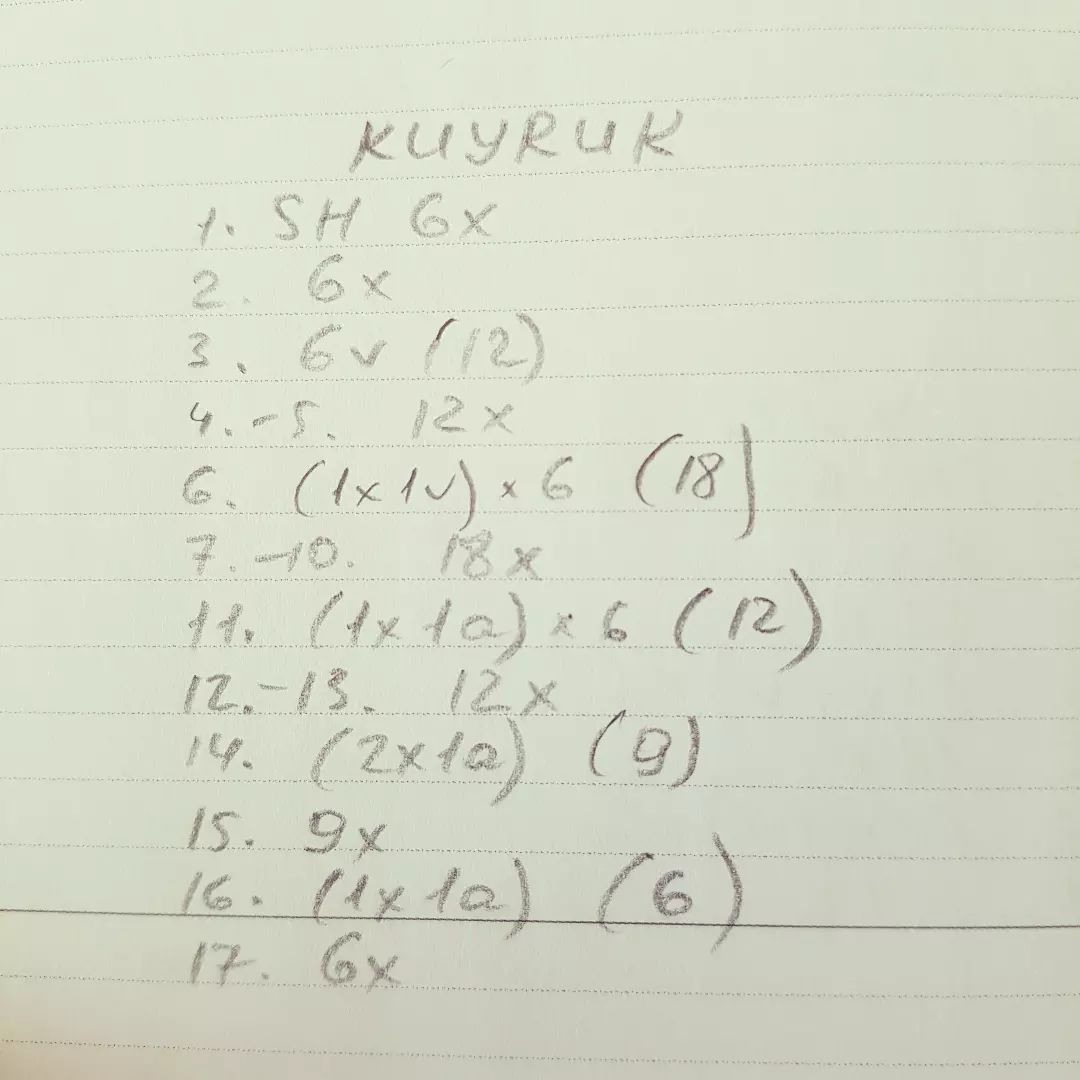 KUYRUK
1. SH 6x
2. 6x
3. 6v (12)
4.-5. 12x
6. (1x1v) x 6 (18)
7.-10. 18x
11. (1x1a) x 6 (12)
12.-13. 12x
14. (2x1a) (9)
15. 9x
16. (1x1a) (6)
17. 6x